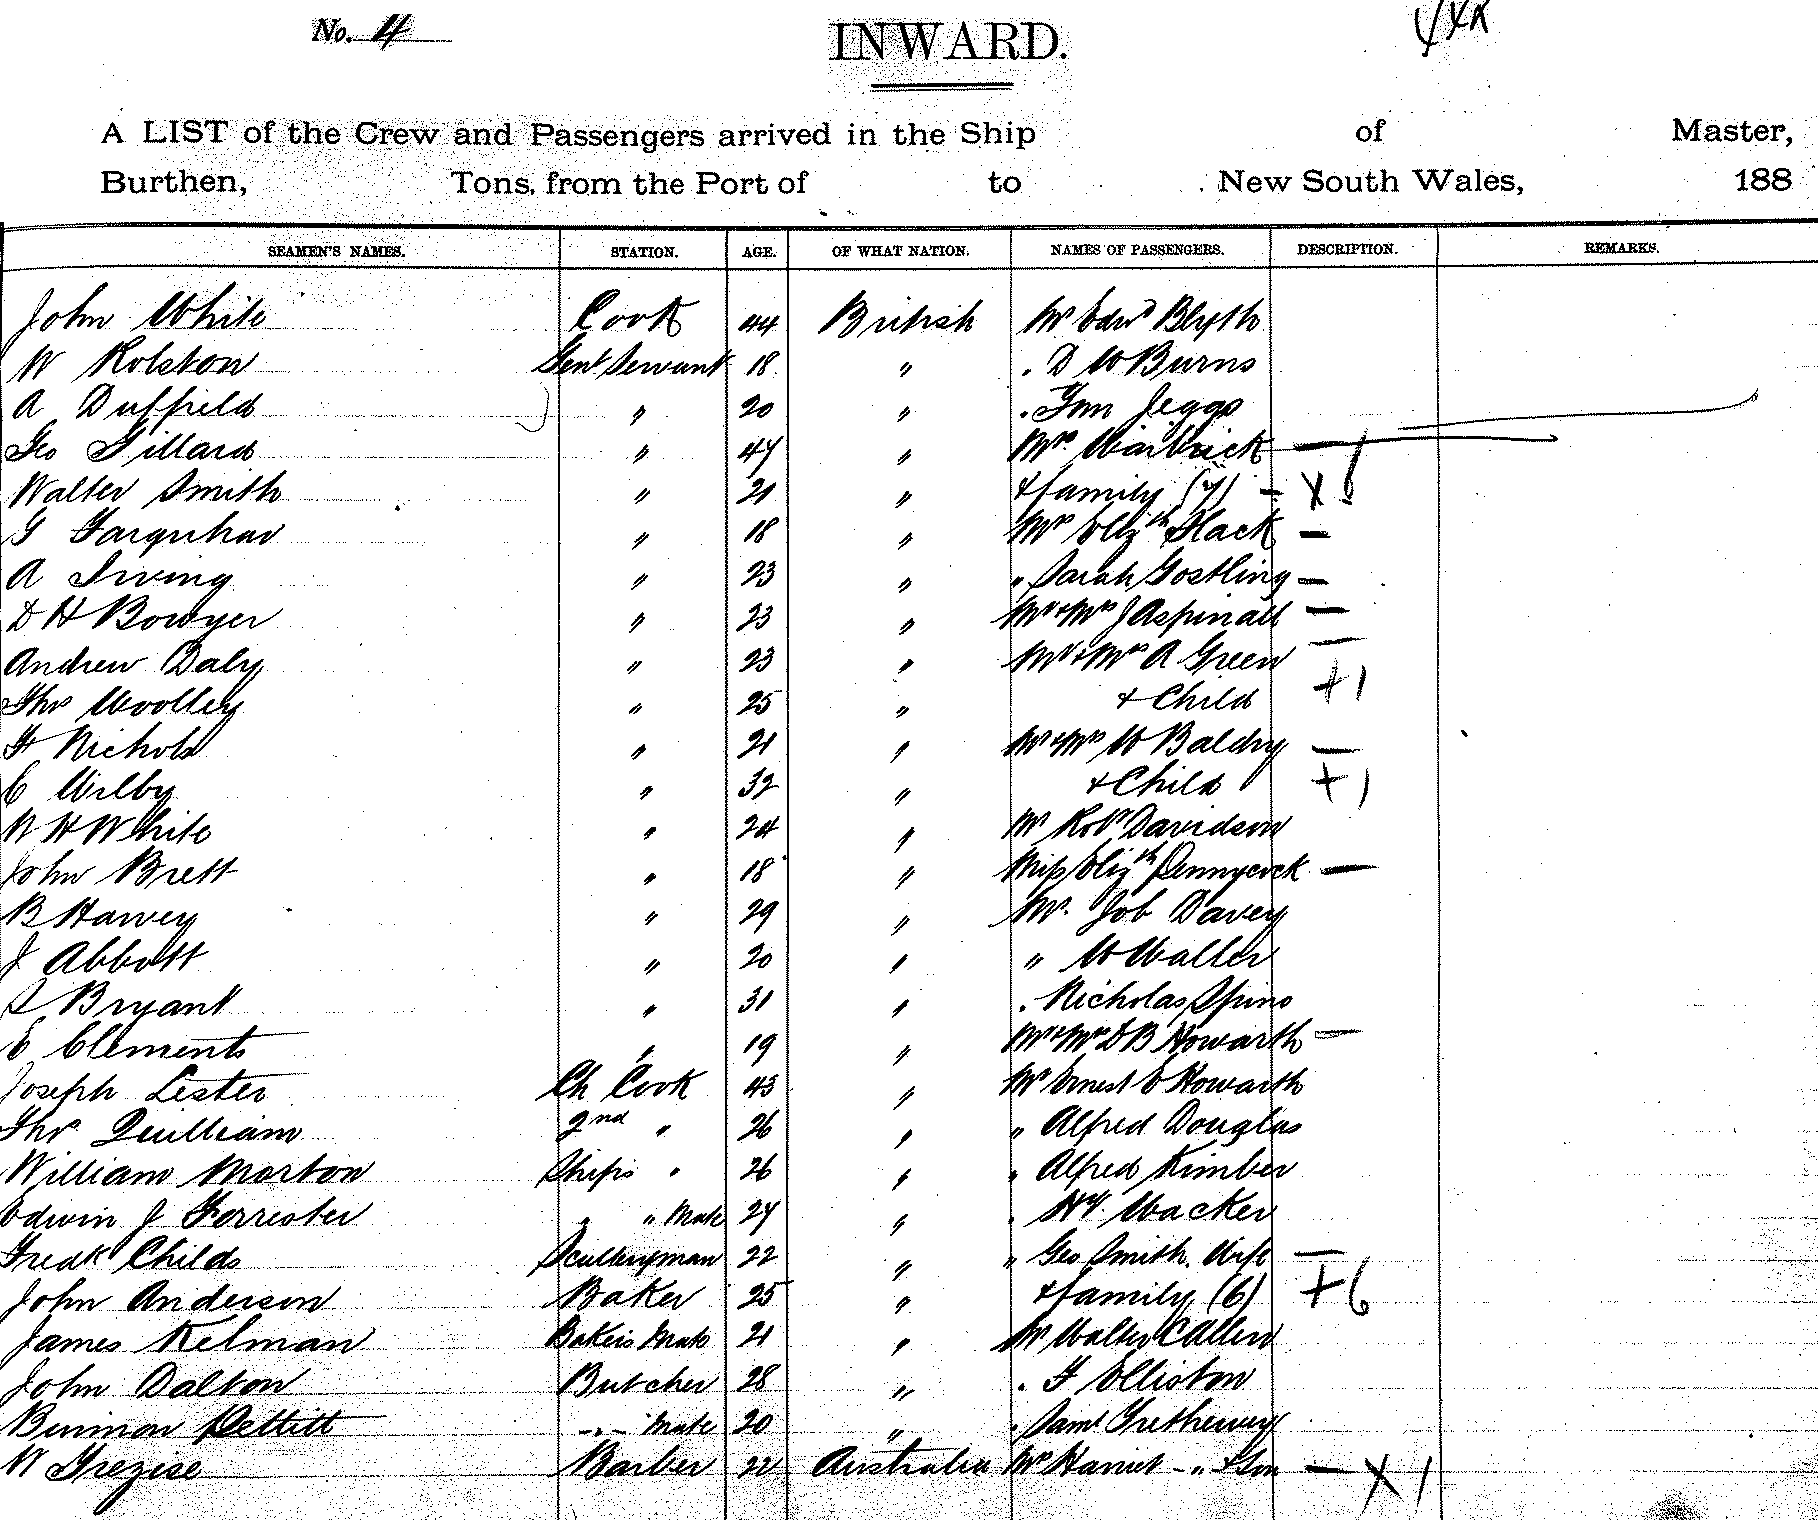 No. 4
INWARD.
A LIST of the Crew and Passengers arrived in the Ship of Master,
Burthen, Tons, from the Port of to New South Wales, 188
SEAMEN'S NAMES. STATION. AGE. OF WHAT NATION. NAMES OF PASSENGERS. DESCRIPTION. REMARKS.
John White Cook 44 British Mr Edwd Blyth
W Rolston Genl Servant 18 " . D W Burns
A Duffield " 20 " . Jeggs
Geo Gillard " 47 " Mrs. Warbrick —
Walter Smith " 21 " + family (7) – X
G Farquhar " 18 " Mrs Elizth Slack —
A Irving " 23 " " Sarah Gostling —
D H Bowyer " 23 " Mr + Mrs J Aspinall —
Andrew Daly " 23 " Mr + Mrs A Green —
Thos Woolley " 25 " + Child + 1
F Nichols " 21 " Mr + Mrs W Baldry —
C Wilby " 32 " + Child + 1
W H White " 24 " Mr Robt Davidson
John Brett " 18 " Miss Elizth Pennycook —
B Harvey " 29 " Mr. Job Davey
J Abbott " 20 " " W Waller
S Bryant " 31 " . Nicholas Spino
E Clements " 19 " Mr + Mrs D B Howarth —
Joseph Lester Ch Cook 43 " Mr Ernest E Howarth
Thos Quilliam 2nd " 26 " " Alfred Douglas
William Morton Ships " 26 " " Alfred Kimber
Edwin J Forrester " " Mate 24 " . Hy. Wacker
Fredk Childs Sculleryman 22 " " Geo Smith. Wife —
John Anderson Baker 25 " + family (6) + 6
James Kelman Bakers Mate 21 " Mr Walter C Allen
John Dalton Butcher 28 " . F Elliston
Pettitt - " - Mate 20 " . Saml Trethewey
W Trezise Barber 22 Australia Mrs Harriet - " + Son — X 1